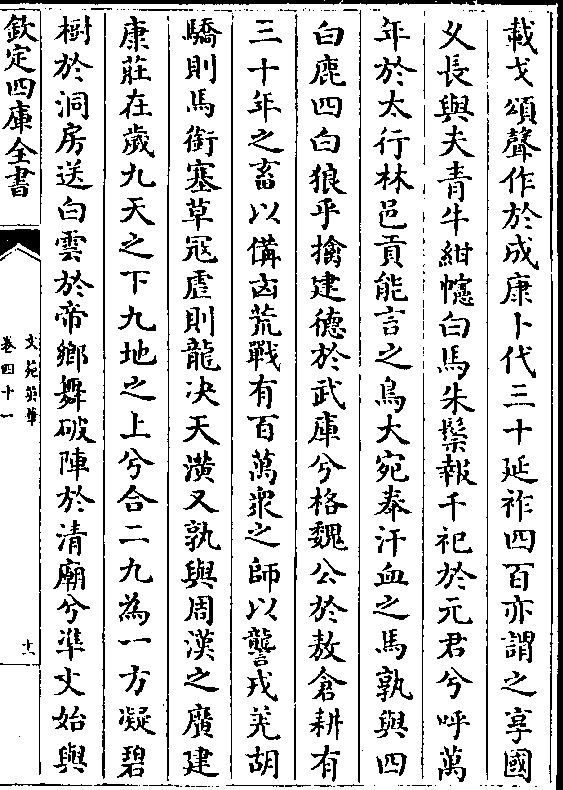 載戈頌聲作於成康卜代三十延祚四百亦謂之享國
乆長與夫青牛紺幰白馬朱鬃報千祀於元君兮呼萬
年於太行林邑貢能言之鳥大宛奉汗血之馬孰與四
白鹿四白狼乎擒建德於武庫兮格魏公於敖倉耕有
三十年之畜以備凶荒戰有百萬衆之師以讋戎羌胡
驕則馬銜塞草冦虐則龍决天潢又孰與周漢之廣建
康莊在歲九天之下九地之上兮合二九為一方凝碧
樹於洞房送白雲於帝鄉舞破陣於清廟兮準丈始與
欽定四庫全書
文苑英華
卷四十一
十一